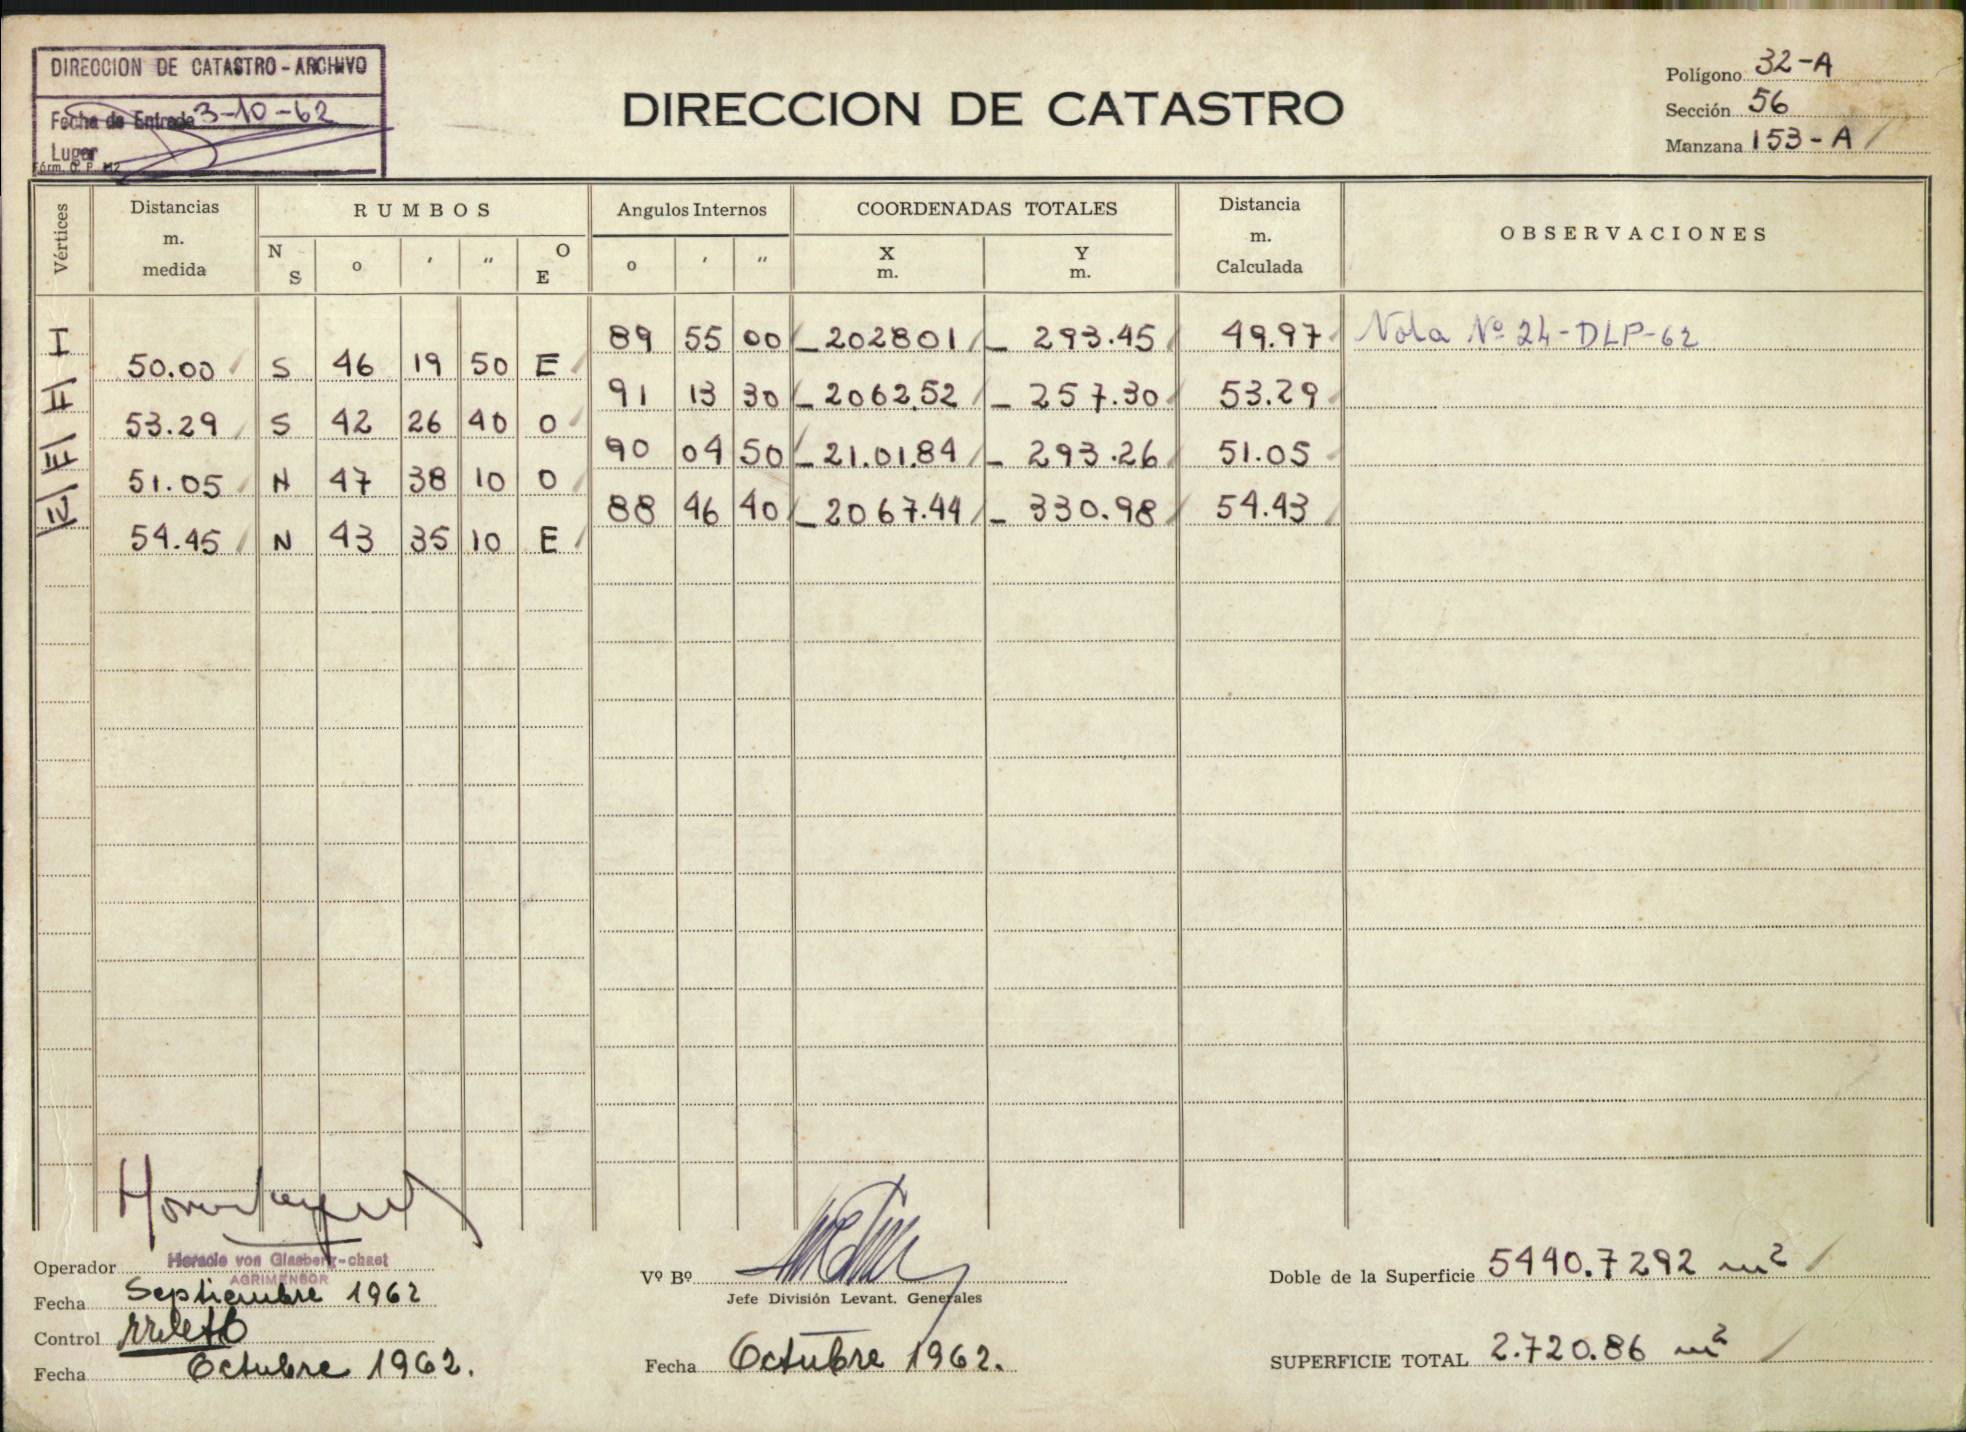 DIRECCION DE CATASTRO - ARCHIVO
Fecha de Entrada 3-10-62
Lugar
Fórm. O. P. 112
DIRECCION DE CATASTRO
Polígono 32-A
Sección 56
Manzana 153-A
Vértices
Distancias
m.
medida
RUMBOS
N S o ' " O E
Angulos Internos
o ' "
COORDENADAS TOTALES
X
m.
Y
m.
Distancia
m.
Calculada
OBSERVACIONES
I 89 55 00 - 202801 - 293.45 49.97 Nota Nº 24-DLP-62
50.00 S 46 19 50 E
II 91 13 30 - 2062.52 - 257.30 53.29
53.29 S 42 26 40 O
III 90 04 50 - 21.01.84 - 293.26 51.05
51.05 N 47 38 10 O
IV 88 46 40 - 2067.44 - 330.98 54.43
54.45 N 43 35 10 E
Operador
von
AGRIMENSOR
Fecha Septiembre 1962
Control
Fecha Octubre 1962.
Vº Bº
Jefe División Levant. Generales
Fecha Octubre 1962.
Doble de la Superficie 5440.7292 m²
SUPERFICIE TOTAL 2.720.86 m²